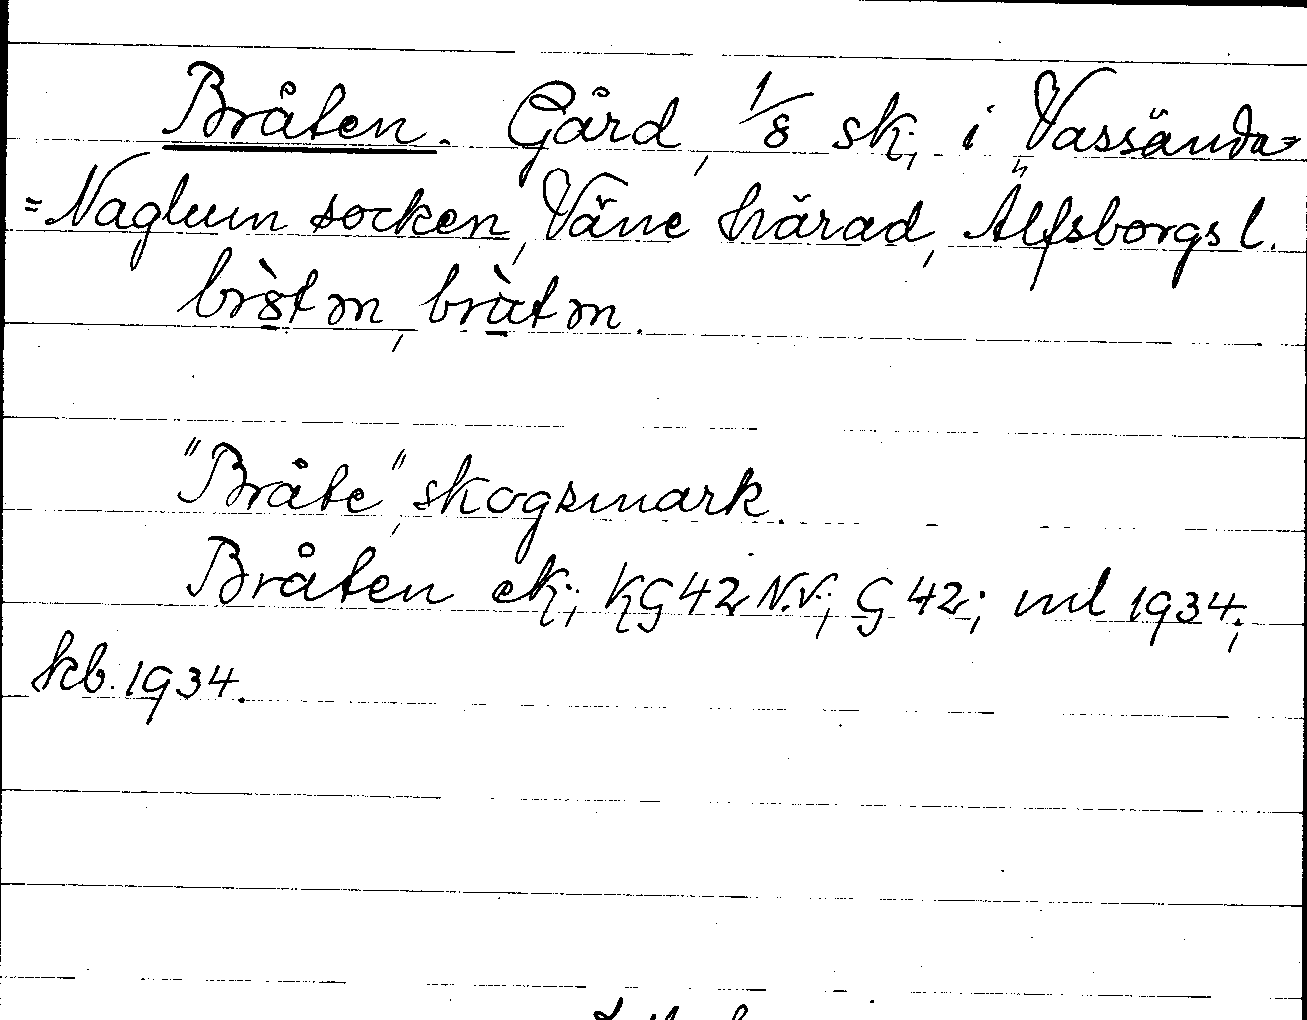 Bråten. Gård, 1/8 sk, i Vassända=
=Naglum socken, Väne härad, Älfsborgs l.
"Bråte", skogsmark.
Bråten ek; KG 42 N.V.; G 42; ml 1934;
kb. 1934.